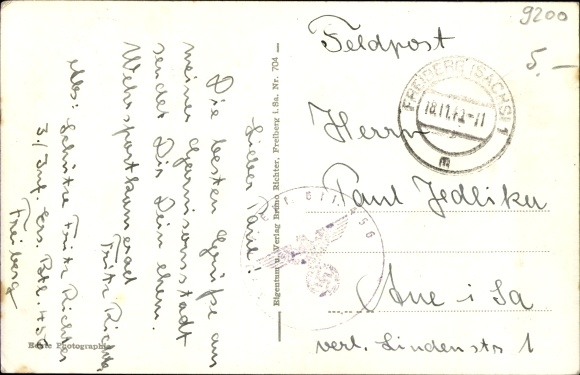 9200
5.-
Feldpost
FREIBERG (SACHS) 1
18.11.42-11
m
Herrn
Paul Jedliker
Aue i Sa
verl. Lindenstr 1
Lieber Paul!
Die besten Grüße aus
meiner Garnisonsstadt
sendet Dir Dein ehem.
Wehrsportkamerad
Fritz Richter
Abs: Schütze Fritz Richter
3./Inf. Ers. Batl. 456
Freiberg
Eigentum u. Verlag Bruno Richter, Freiberg i. Sa. Nr. 704
Echte Photographie